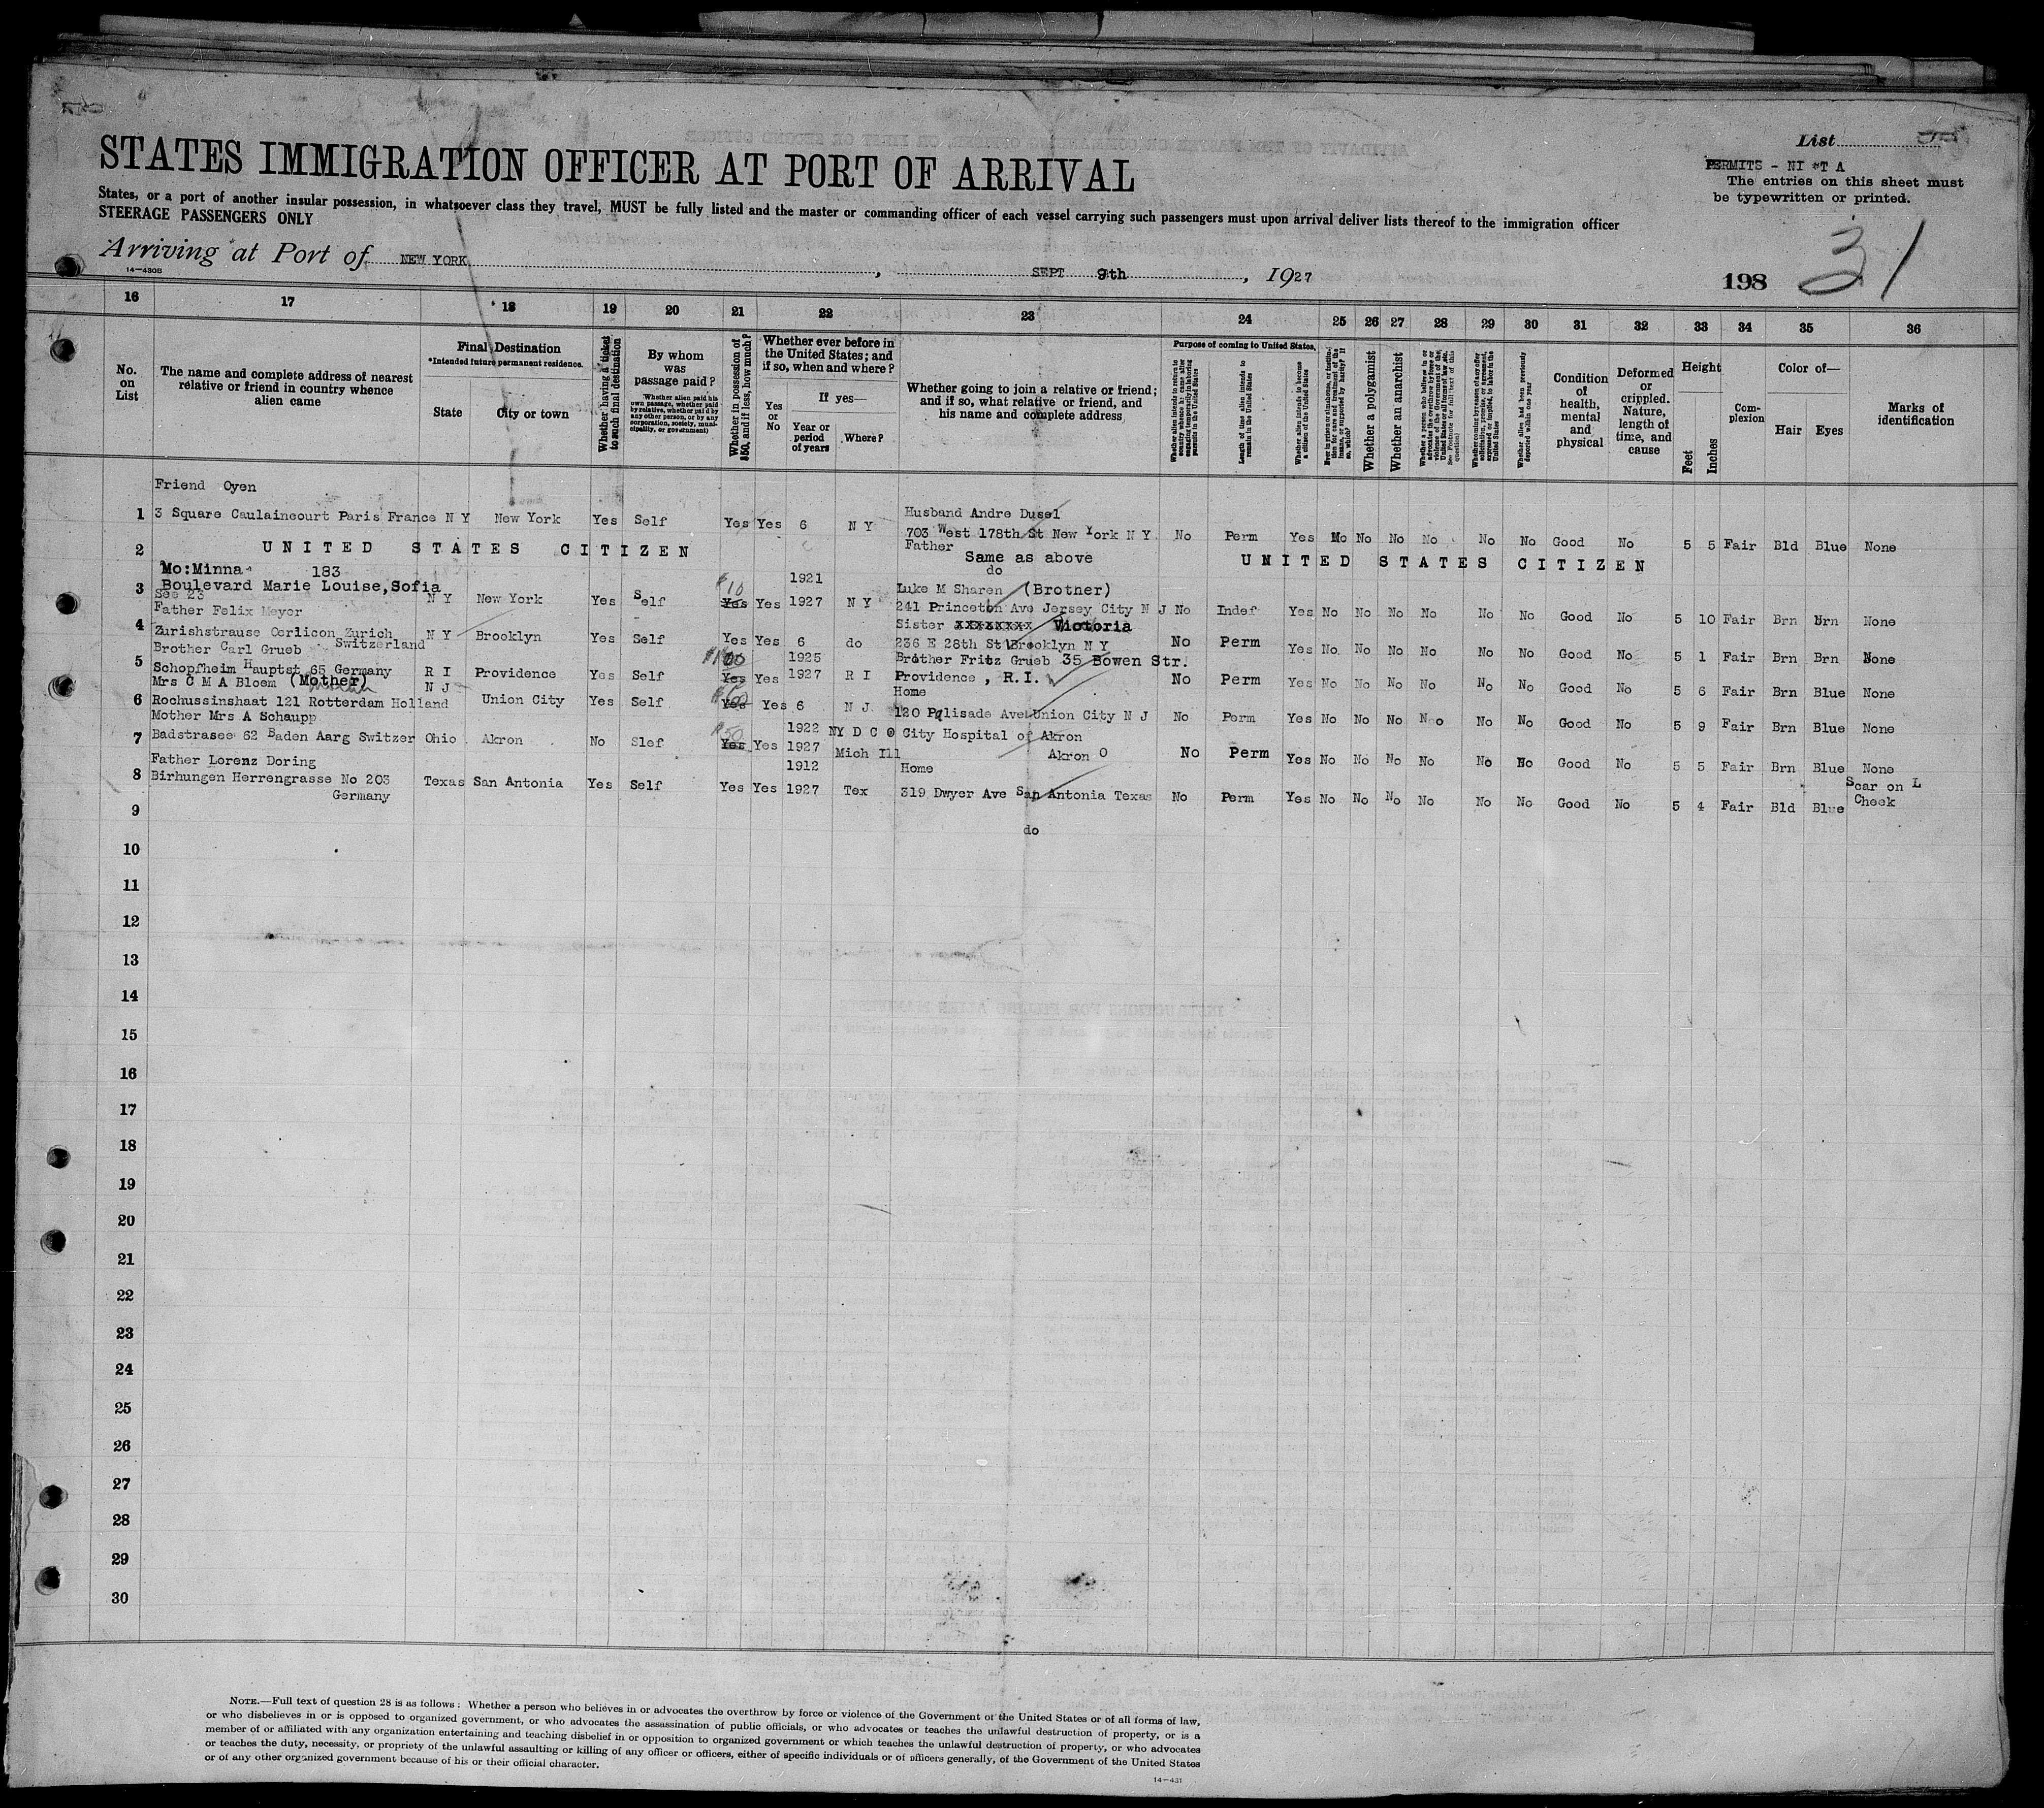 List
STATES IMMIGRATION OFFICER AT PORT OF ARRIVAL
PERMITS - NI *T A
The entries on this sheet must
be typewritten or printed.
States, or a port of another insular possession, in whatsoever class they travel, MUST be fully listed and the master or commanding officer of each vessel carrying such passengers must upon arrival deliver lists thereof to the immigration officer
STEERAGE PASSENGERS ONLY
Arriving at Port of NEW YORK, SEPT 9th, 1927
14-430B
198 31
16 17 18 19 20 21 22 23 24 25 26 27 28 29 30 31 32 33 34 35 36
No. on List
The name and complete address of nearest relative or friend in country whence alien came
Final Destination
*Intended future permanent residence.
State
City or town
Whether having a ticket to such final destination
By whom was passage paid?
Whether alien paid his own passage, whether paid by relative, whether paid by any other person, or by any corporation, society, municipality, or government)
Whether in possession of $50, and if less, how much?
Whether ever before in the United States; and if so, when and where?
Yes or No
If yes—
Year or period of years
Where?
Whether going to join a relative or friend; and if so, what relative or friend, and his name and complete address
Purpose of coming to United States.
Whether alien intends to return to country whence he came after engaging temporarily in laboring pursuits in the United States
Length of time alien intends to remain in the United States
Whether alien intends to become a citizen of the United States
Ever in prison or almshouse, or institution for care and treatment of the insane, or supported by charity? If so, which?
Whether a polygamist
Whether an anarchist
Whether a person who believes in or advocates the overthrow by force or violence of the Government of the United States or all forms of law, etc.
See Footnote for full text of this question)
Whether coming by reason of any offer, solicitation, promise, or agreement, expressed or implied, to labor in the United States
Whether alien had been previously deported within one year
Condition of health, mental and physical
Deformed or crippled. Nature, length of time, and cause
Height
Feet
Inches
Complexion
Color of—
Hair
Eyes
Marks of identification
Friend Oyen
Husband Andre Dusel
1 3 Square Caulaincourt Paris France N Y New York Yes Self Yes Yes 6 N Y 703 West 178th St New York N Y No Perm Yes No No No No No No Good No 5 5 Fair Bld Blue None
Father
2 UNITED STATES CITIZEN Same as above UNITED STATES CITIZEN
do
Mo:Minna 183
1921 Luke M Sharen (Brotner)
$10
3 Boulevard Marie Louise, Sofia
See 23 N Y New York Yes Self Yes Yes 1927 N Y 241 Princeton Ave Jersey City N J No Indef Yes No No No No No No Good No 5 10 Fair Brn Brn None
Father Felix Meyer
Sister xxxxxxxx Victoria
4 Zurishstrause Oerlicon Zurich Switzerland N Y Brooklyn Yes Self Yes Yes 6 do 236 E 28th St Brooklyn N Y No Perm Yes No No No No No No Good No 5 1 Fair Brn Brn None
Brother Carl Grueb
1925 Brother Fritz Grueb 35 Bowen Str.
5 Schopfheim Hauptst 65 Germany R I Providence Yes Self Yes Yes 1927 R I Providence, R.I. No Perm Yes No No No No No No Good No 5 6 Fair Brn Blue None
Mrs C M A Bloem (Mother)
Home
6 Rochussinshaat 121 Rotterdam Holland N J Union City Yes Self Yes Yes 6 N J 120 Palisade Ave Union City N J No Perm Yes No No No No No No Good No 5 9 Fair Brn Blue None
Mother Mrs A Schaupp
$50
1922 NY D C O City Hospital of Akron
7 Badstrasee 62 Baden Aarg Switzer Ohio Akron No Slef Yes Yes 1927 Mich Ill Akron O No Perm Yes No No No No No No Good No 5 5 Fair Brn Blue None
Father Lorenz Doring
1912 Home
8 Birhungen Herrengrasse No 203
Germany Texas San Antonia Yes Self Yes Yes 1927 Tex 319 Dwyer Ave San Antonia Texas No Perm Yes No No No No No No Good No 5 4 Fair Bld Blue Scar on L Cheek
9
do
10
11
12
13
14
15
16
17
18
19
20
21
22
23
24
25
26
27
28
29
30
NOTE.—Full text of question 28 is as follows: Whether a person who believes in or advocates the overthrow by force or violence of the Government of the United States or of all forms of law,
or who disbelieves in or is opposed to organized government, or who advocates the assassination of public officials, or who advocates or teaches the unlawful destruction of property, or is a
member of or affiliated with any organization entertaining and teaching disbelief in or opposition to organized government or which teaches the unlawful destruction of property, or who advocates
or teaches the duty, necessity, or propriety of the unlawful assaulting or killing of any officer or officers, either of specific individuals or of officers generally, of the Government of the United States
or of any other organized government because of his or their official character.
14-431